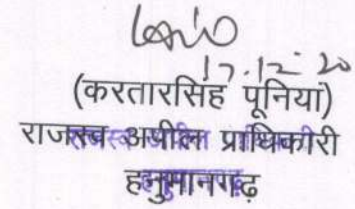 17.12.20
(करतारसिंह पूनिया)
राजस्व अपील प्राधिकारी
हनुमानगढ़